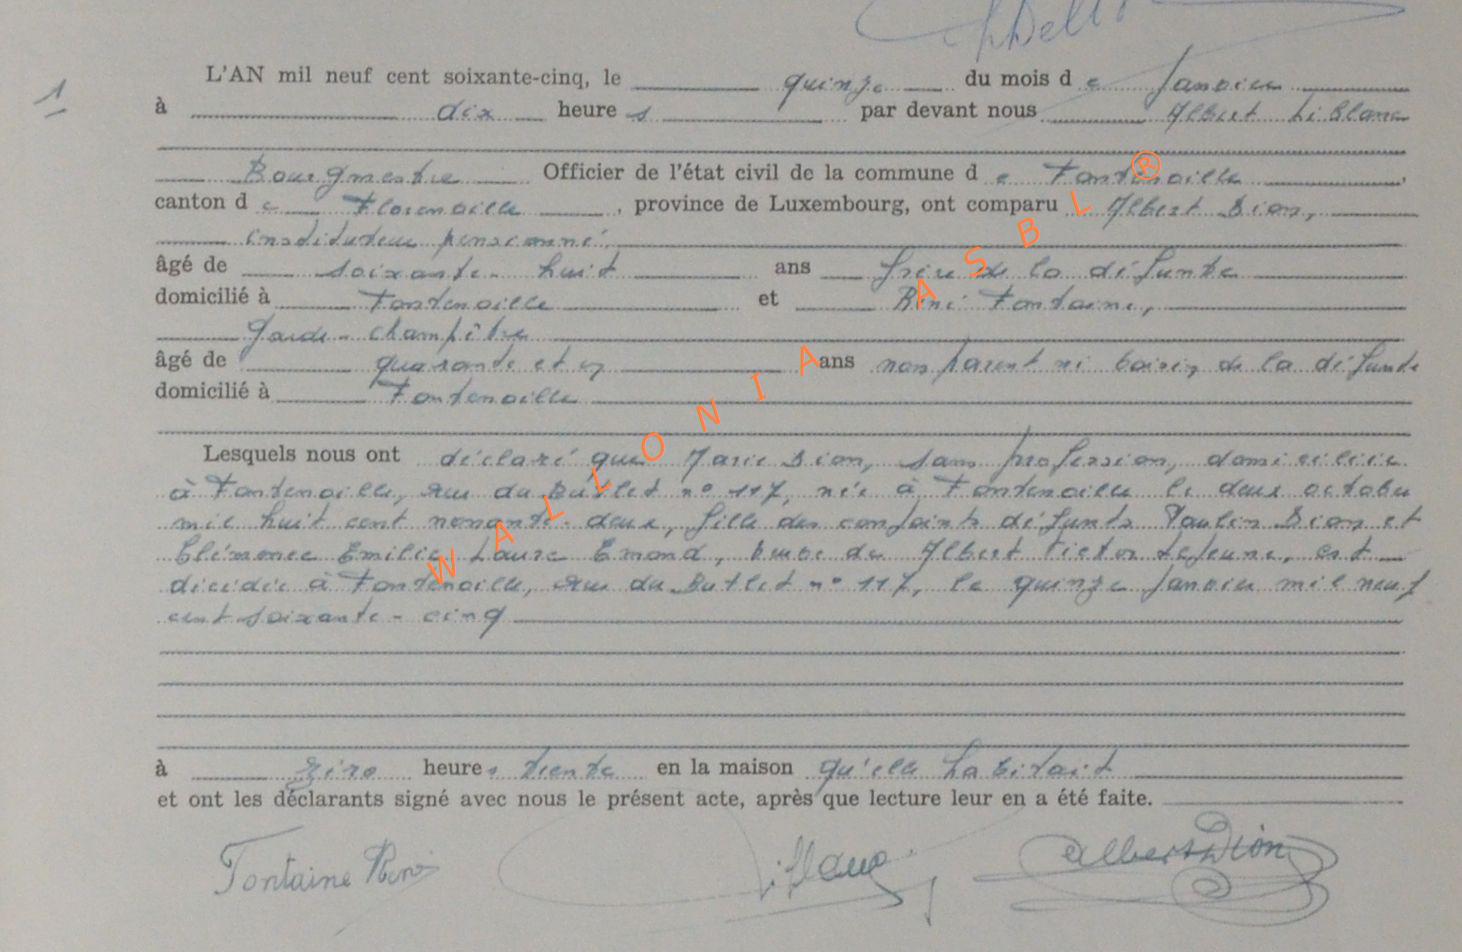 1
L'AN mil neuf cent soixante-cinq, le quinze du mois d e Janvier
à dix heure s par devant nous Albert Liblanc
Bourgmestre Officier de l'état civil de la commune d e Fontenoille,
canton d e Florenville, province de Luxembourg, ont comparu Albert Dion,
instituteur pensionné,
âgé de soixante-huit ans frère de la défunte
domicilié à Fontenoille et René Fontaine,
Garde-champêtre
âgé de quarante et un ans non parent ni voisin de la défunte
domicilié à Fontenoille
Lesquels nous ont déclaré que Marie Dion, sans profession, domiciliée
à Fontenoille, rue du Butlet n° 117, née à Fontenoille le deux octobre
mil huit cent nonante-deux, fille des conjoints défunts Paulin Dion et
Clémence Emilie Laure Emond, veuve de Albert Victor Lejeune, est
décédée à Fontenoille, rue du Butlet n° 117, le quinze Janvier mil neuf
cent soixante-cinq
à zéro heure s trente en la maison qu'elle habitait
et ont les déclarants signé avec nous le présent acte, après que lecture leur en a été faite.
Fontaine René Albert Dion
WALLONIA ASBL ®